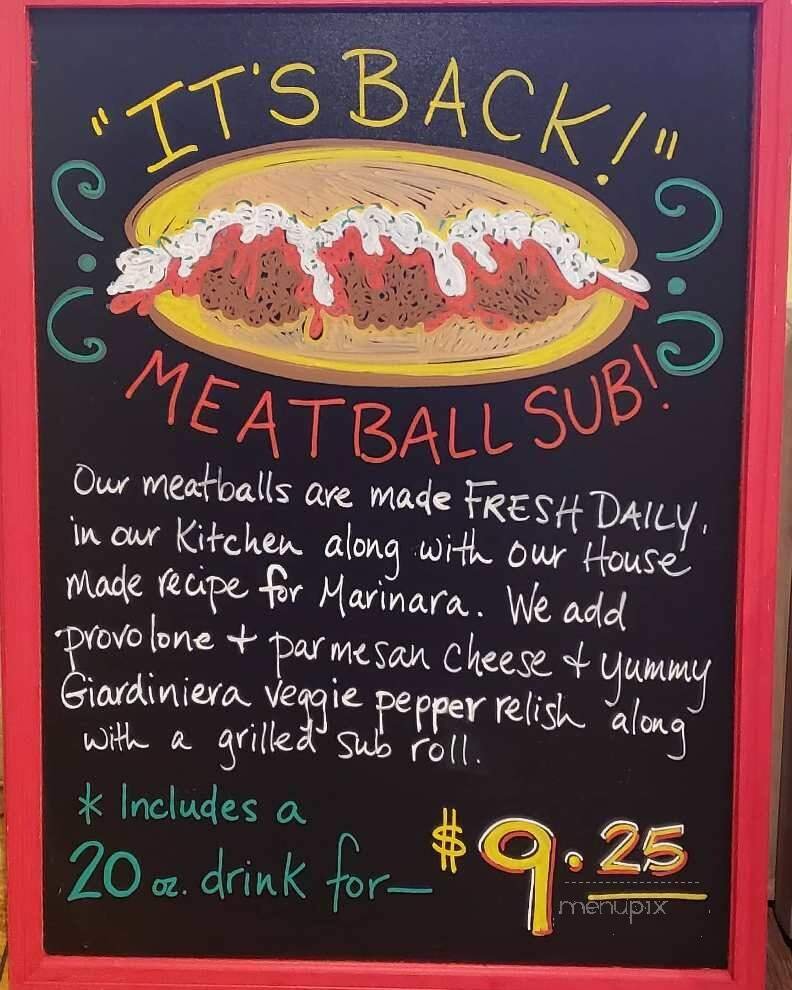 "IT'S BACK!"
MEATBALL SUB!
Our meatballs are made FRESH DAILY.
in our Kitchen along with our House
made recipe for Marinara. We add
provolone + parmesan cheese + yummy
Giardiniera veggie pepper relish along
with a grilled sub roll.
* Includes a
20 oz. drink for— $9.25
menupix